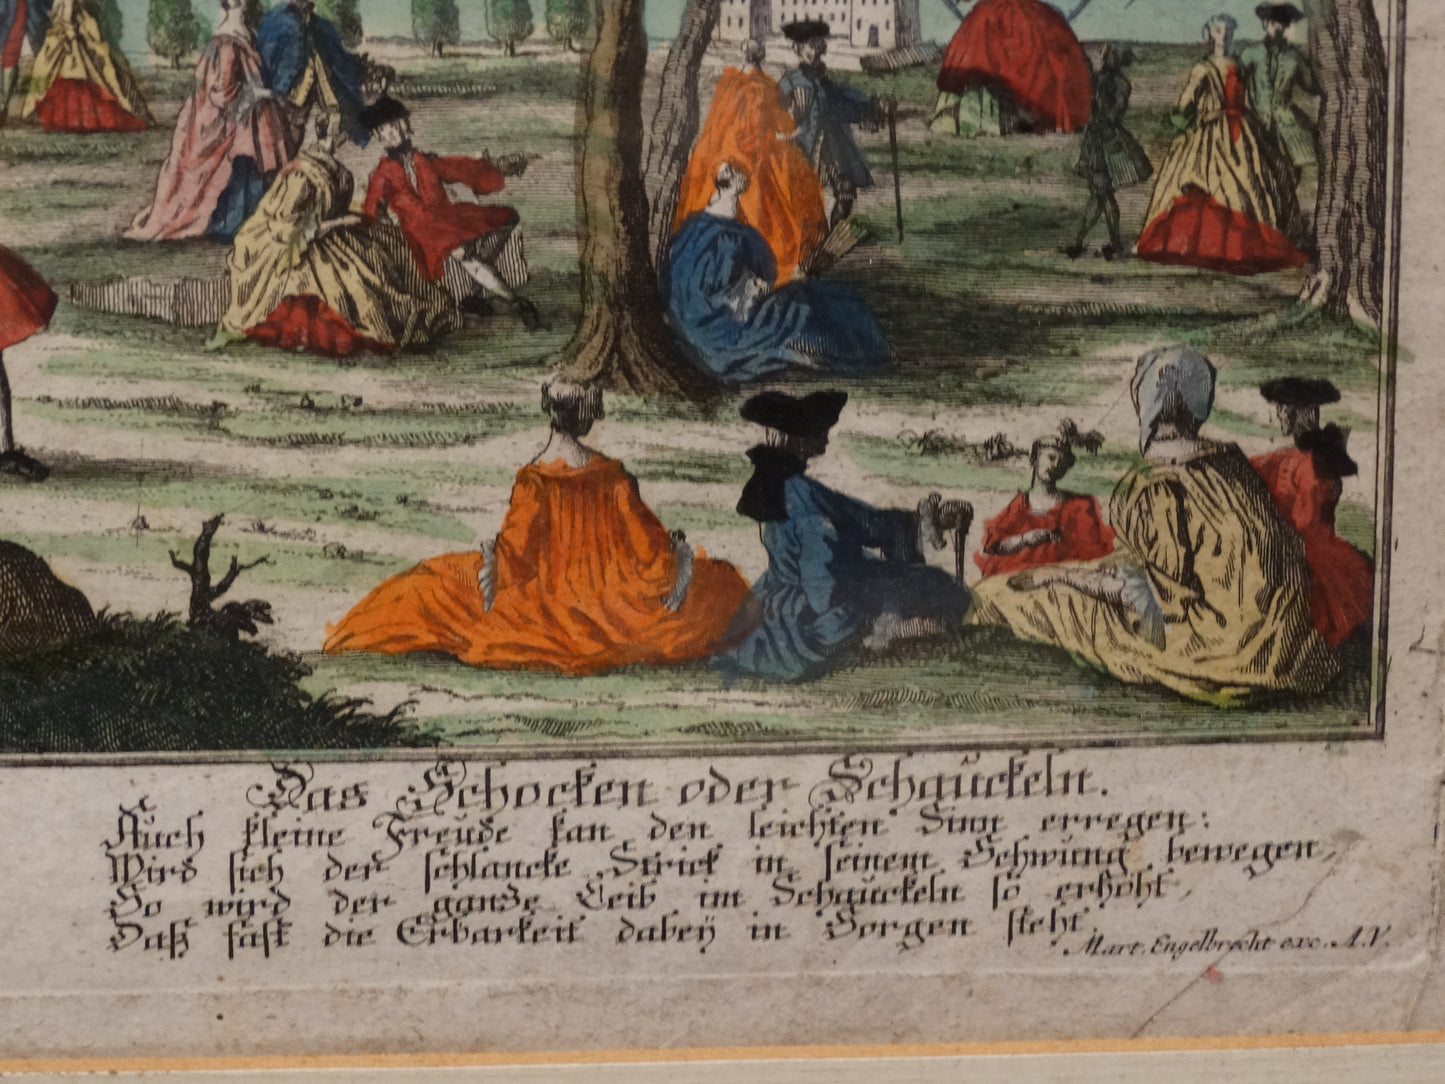 Das Schocken oder Schaückeln.
Auch kleine Freude kan den leichten Sinn erregen:
Wird sich der schlancke Strick in seinem Schwung bewegen,
So wird der ganze Leib im Schaückeln so erhöht,
Daß fast die Erbarkeit dabeÿ in Sorgen steht
Mart. Engelbrecht exc. A.V.